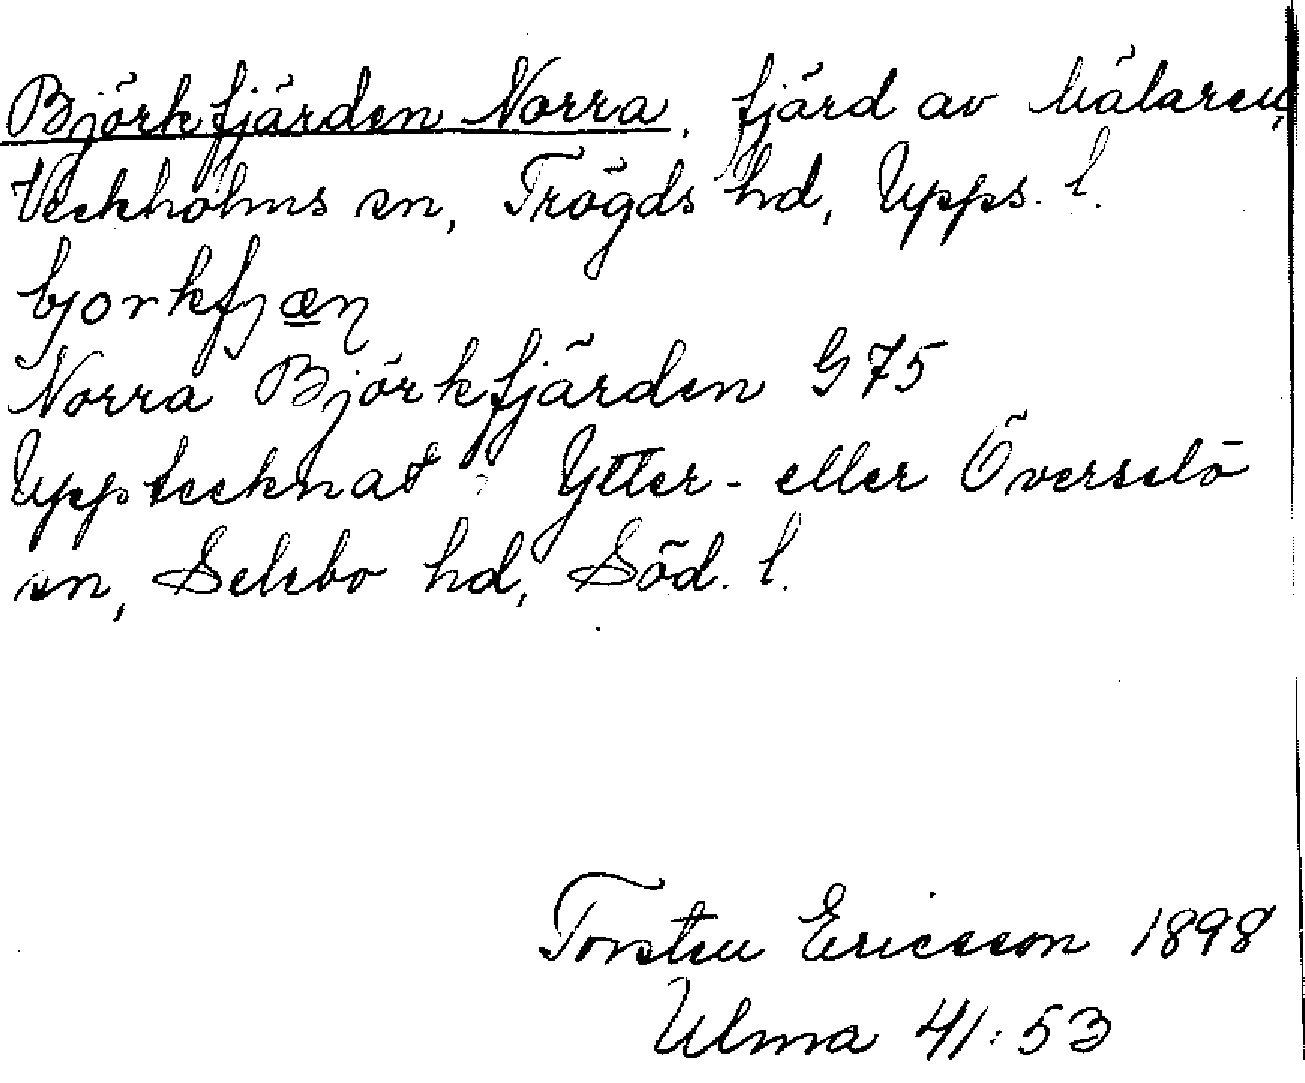 Björkfjärden Norra, fjärd av Mälaren,
Veckholms sn, Trögds hd, Upps. l.
bjorkfjæn
Norra Björkfjärden G 75
Upptecknat i Ytter- eller Överselö
sn, Selebo hd, Söd. l.
Torsten Ericsson 1898
Ulma 41:53